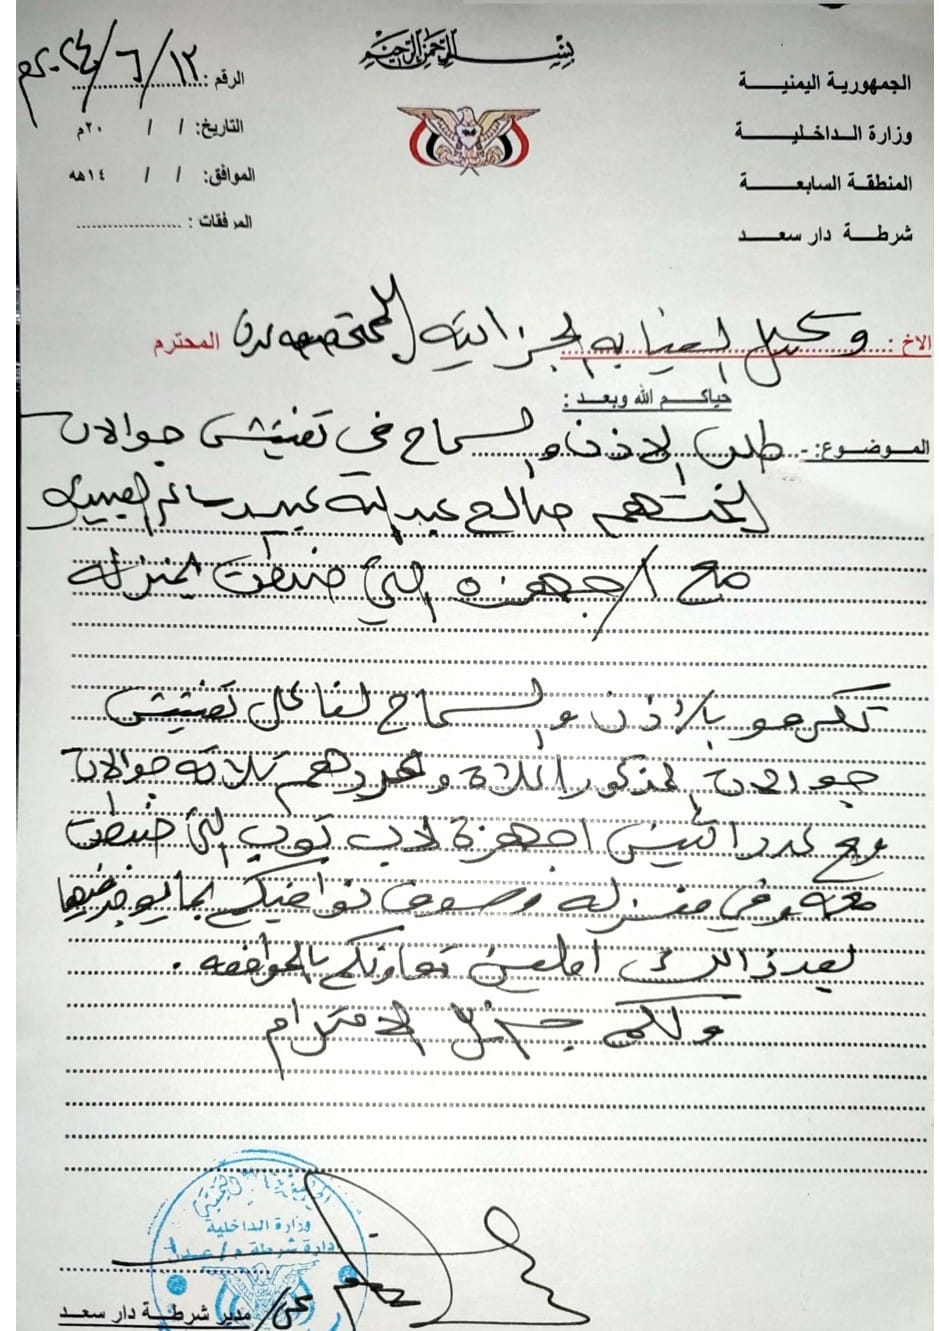 بسم الله الرحمن الرحيم
الجمهورية اليمنية
وزارة الداخلية
المنطقة السابعة
شرطة دار سعد
الرقم : ١٢/٦/٢٠٢٤م
التاريخ: / / ٢٠م
الموافق: / / ١٤هه
المرفقات : ....................
الاخ : وكيل النيابه الجزائية المختصه عدن المحترم
حياكم الله وبعد :
الموضوع: - طلب الاذن والسماح في تفتيش جوالات
المتهم صالح عبدالله عبيد سالم العبيدي
مع الاجهزه التي ضبطت بمنزله
تكرمو بالاذن والسماح لنا على تفتيش
جوالات المذكور اعلاه وعددهم ثلاثه جوالات
مع عدد اثنين اجهزة لاب توب التي ضبطت
معه وفي منزله وسوف نوافيكم بما يوجد فيها
بعد ذالك املين تعاونكم بالموافقه .
ولكم جزيل الاحترام
الجمهورية اليمنية
وزارة الداخلية
ادارة شرطة م/عدن
عن/ مدير شرطة دار سعد